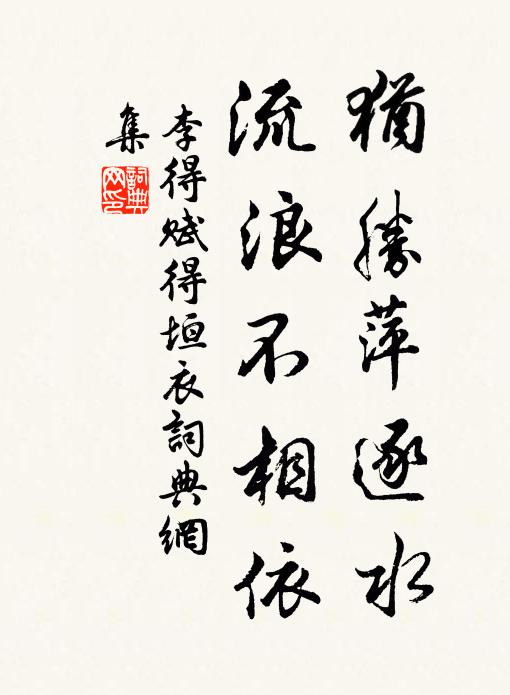 猶勝萍逐水
流浪不相依
李得賦得垣衣詞典網
集
詞典
网印